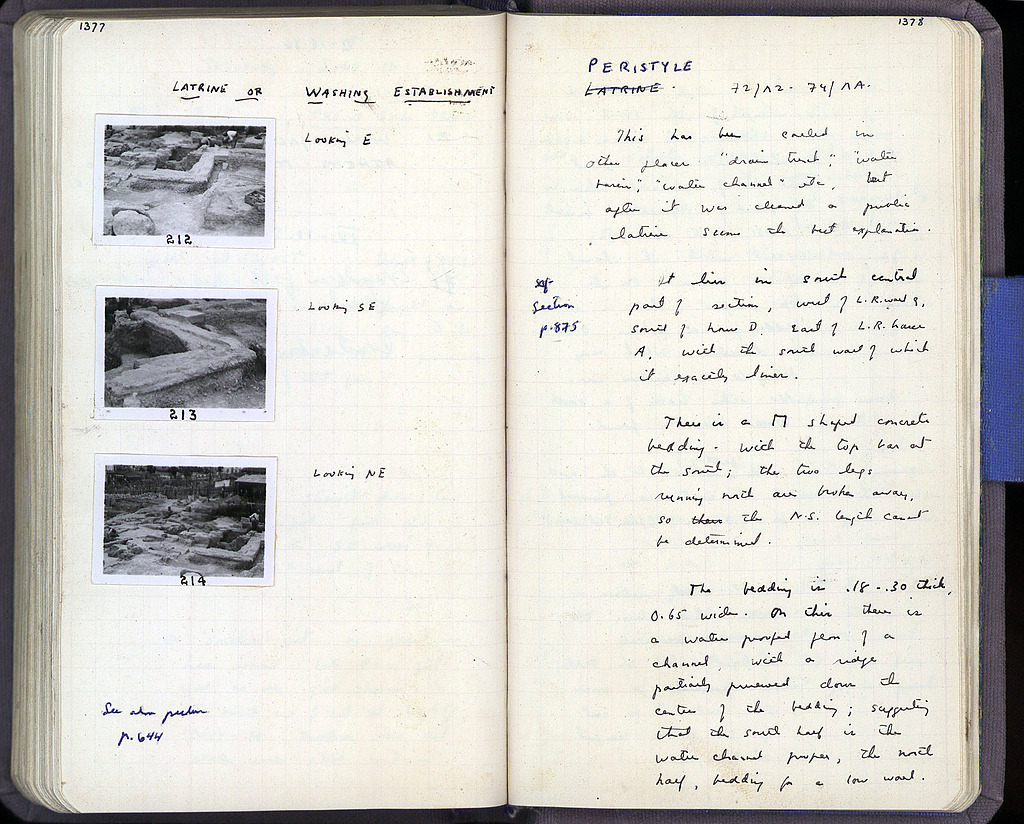 1377
LATRINE OR WASHING ESTABLISHMENT
Looking E
212
Looking SE
213
Looking NE
214
See also
p. 644
1378
PERISTYLE
LATRINE.
This has been called in
other places "drain trench", "water
basin", "water channel" etc, but
after it was cleaned a public
latrine seems the best explanation.
section
p. 875
It lies in south central
part of section, west of L.R. wall 9,
south of house D, East of L.R. house
A, with the south wall of which
it exactly lines.
There is a Π shaped concrete
bedding. With the top bar at
the south; the two legs
running north are broken away,
so there the N.S. length cannot
be determined.
The bedding is .18-.30 thick,
0.65 wide. On this there is
a water proofed floor of a
channel, with a ridge
partially preserved down the
center of the bedding; suggesting
that the south half is the
water channel proper, the north
half, bedding for a low wall.